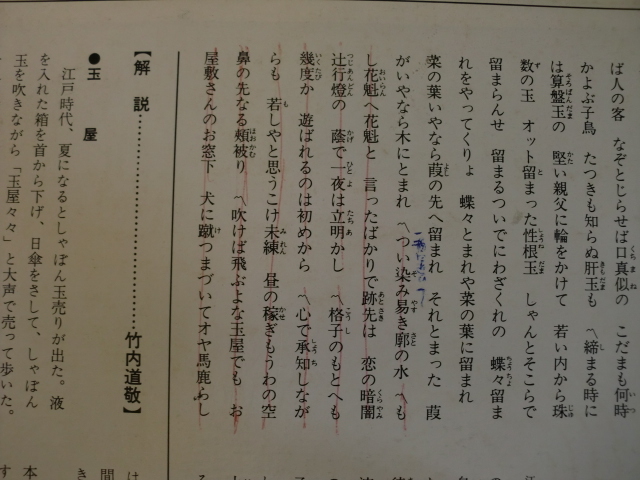 ば人の客　なぞとじらせば口真似の　こだまも何時
かよぶ子鳥　たつきも知らぬ肝玉も　〽締まる時に
は算盤玉の　堅い親父に輪をかけて　若い内から珠
数の玉　オット留まった性根玉　しゃんとそこらで
留まらんせ　留まるついでにわざくれの　蝶々留ま
れをやってくりょ　蝶々とまれや菜の葉に留まれ
菜の葉いやなら葭の先へ留まれ　それとまった　葭
がいやなら木にとまれ　〽つい染み易き廓の水　〽も
し花魁へ花魁と　言ったばかりで跡先は　恋の暗闇
辻行燈の　蔭で一夜は立明かし　〽格子のもとへも
幾度か　遊ばれるのは初めから　〽心で承知しなが
らも　若しやと思うこけ未練　昼の稼ぎもうわの空
鼻の先なる頬被り　〽吹けば飛ぶよな玉屋でも　お
屋敷さんのお窓下　犬に蹴つまづいてオヤ馬鹿らし
【解　説……………………………竹内道敬】
●玉　屋
江戸時代、夏になるとしゃぼん玉売りが出た。液
を入れた箱を首から下げ、日傘をさして、しゃぼん
玉を吹きながら「玉屋々々」と大声で売って歩いた。